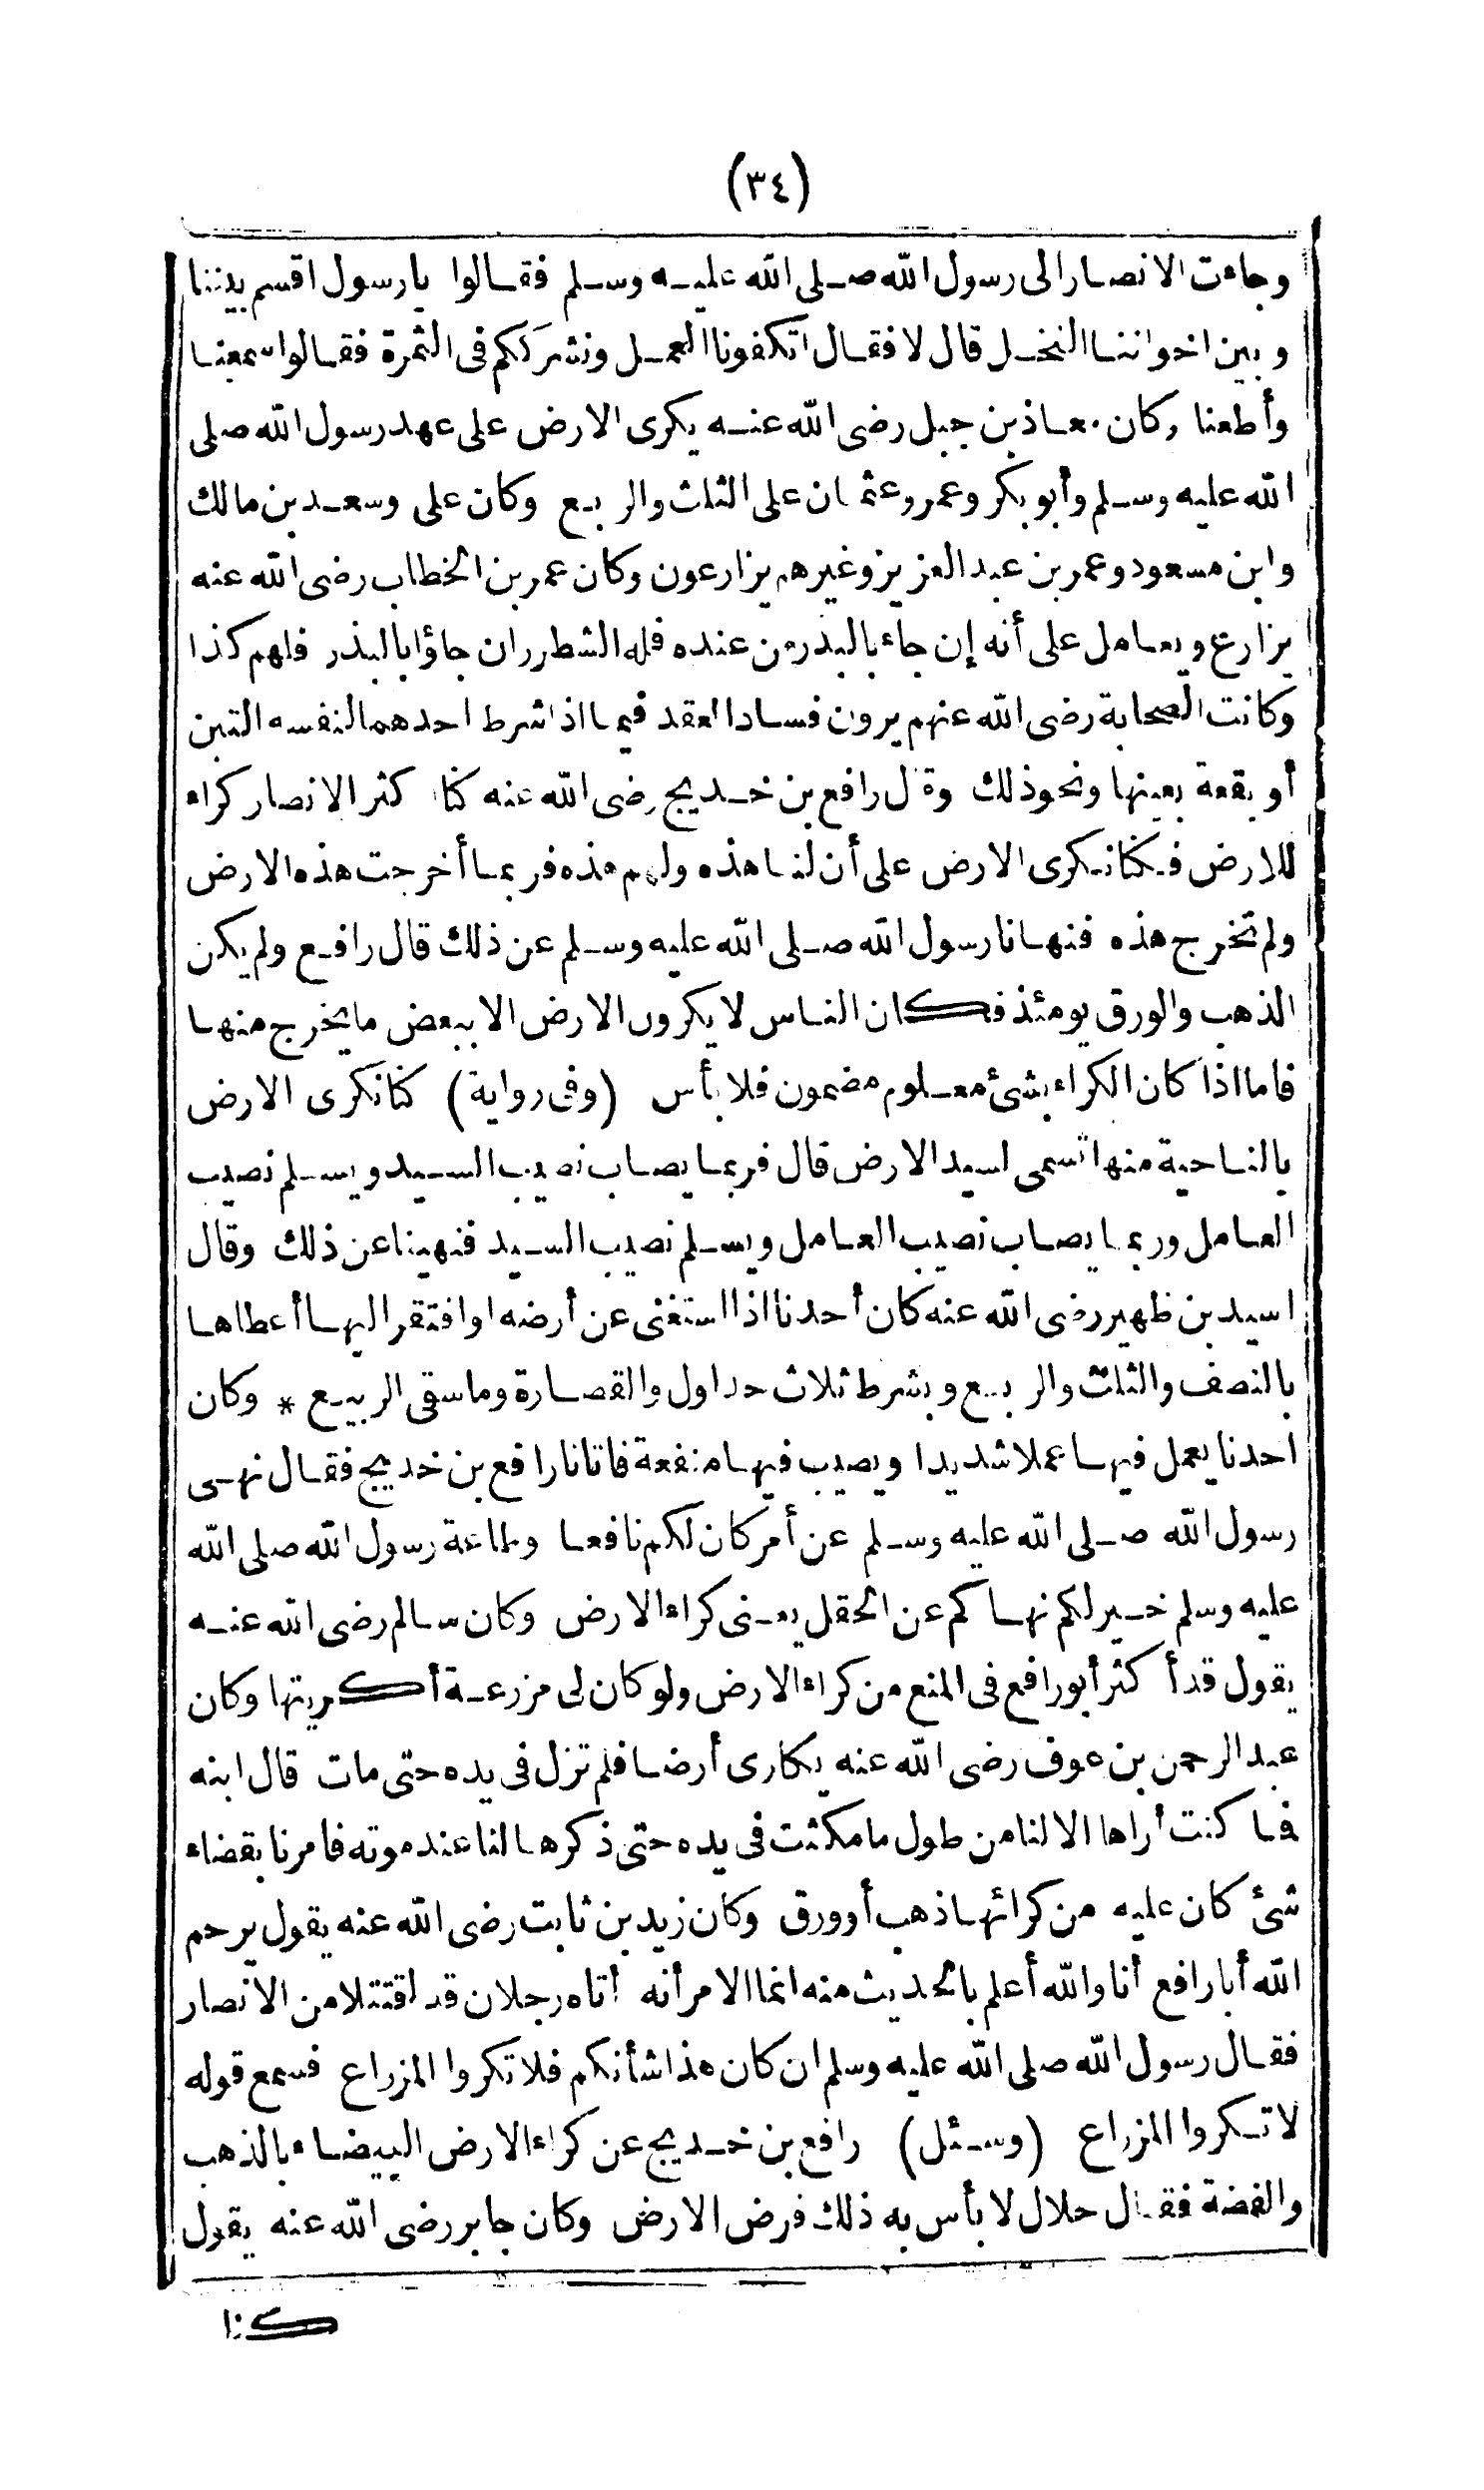 (٣٤)
وجاءت الانصار الى رسول الله صلى الله عليه وسلم فقالوا يا رسول اقسم بيننا
وبين اخواننا النخل قال لا فقال اتكفونا العمل ونشرَككم فى الثمرة فقالوا سمعنا
وأطعنا وكان معاذ بن جبل رضى الله عنه يكرى الارض على عهد رسول الله صلى
الله عليه وسلم وأبو بكر وعمر وعثمان على الثلث والربع وكان على وسعد بن مالك
وابن مسعود وعمر بن عبد العزيز وغيرهم يزارعون وكان عمر بن الخطاب رضى الله عنه
يزارع ويعامل على أنه إن جاء بالبذر من عنده فله الشطر وان جاؤا بالبذر فلهم كذا
وكانت الصحابة رضى الله عنهم يرون فساد العقد فيما اذا شرط احدهما لنفسه التبن
أو بقعة بعينها ونحو ذلك وقال رافع بن خديج رضى الله عنه كنا كثر الانصار كراء
للارض فكنا نكرى الارض على أن لنا هذه ولهم هذه فربما أخرجت هذه الارض
ولم تخرج هذه فنهانا رسول الله صلى الله عليه وسلم عن ذلك قال رافع ولم يكن
الذهب والورق يومئذ فكان الناس لا يكرون الارض الا ببعض ما يخرج منها
فاما اذا كان الكراء بشئ معلوم مضمون فلا بأس (وفى رواية) كنا نكرى الارض
بالناحية منها تسمى لسيد الارض قال فربما يصاب نصيب السيد ويسلم نصيب
العامل وربما يصاب نصيب العامل ويسلم نصيب السيد فنهينا عن ذلك وقال
اسيد بن ظهير رضى الله عنه كان أحدنا اذا استغنى عن أرضه او افتقر اليها أعطاها
بالنصف والثلث والربع وبشرط ثلاث جداول والقصارة وما سقى الربيع * وكان
احدنا يعمل فيها عملا شديدا ويصيب فيها منفعة فاتانا رافع بن خديج فقال نهى
رسول الله صلى الله عليه وسلم عن أمر كان لكم نافعا وطاعة رسول الله صلى الله
عليه وسلم خير لكم نهاكم عن الحقل يعنى كراء الارض وكان سالم رضى الله عنه
يقول قد أكثر أبو رافع فى المنع من كراء الارض ولو كان لى مزرعة أكريتها وكان
عبد الرحمن بن عوف رضى الله عنه يكارى أرضا فلم تزل فى يده حتى مات قال ابنه
فما كنت أراها الا لنا من طول ما مكثت فى يده حتى ذكرها لنا عند موته فامرنا بقضاء
شئ كان عليه من كرائها ذهب أو ورق وكان زيد بن ثابت رضى الله عنه يقول يرحم
الله أبا رافع أنا والله أعلم بالحديث منه انما الامر أنه أتاه رجلان قد اقتتلا من الانصار
فقال رسول الله صلى الله عليه وسلم ان كان هذا شأنكم فلا تكروا المزراع فسمع قوله
لا تكروا المزراع (وسئل) رافع بن خديج عن كراء الارض البيضاء بالذهب
والفضة فقال حلال لا بأس به ذلك فرض الارض وكان جابر رضى الله عنه يقول
كنا